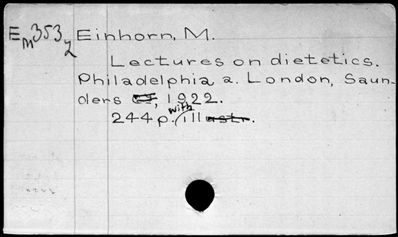 EM353z Einhorn, M.
Lectures on dietetics.
Philadelphia a. London, Saun-
ders, 1922.
244 p. with ill.